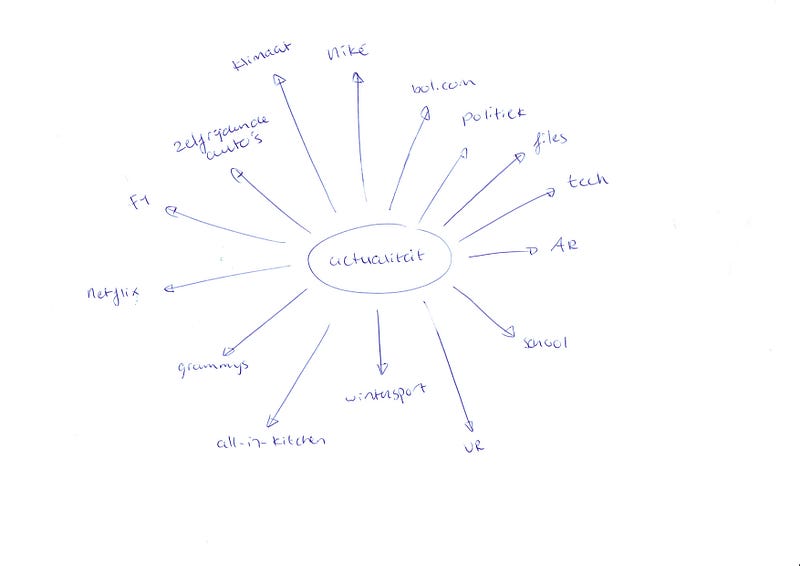 klimaat
Nike
bol.com
politiek
zelfrijdende
auto's
files
F1
tech
AR
actualiteit
netflix
school
grammys
wintersport
all-in-kitchen
VR